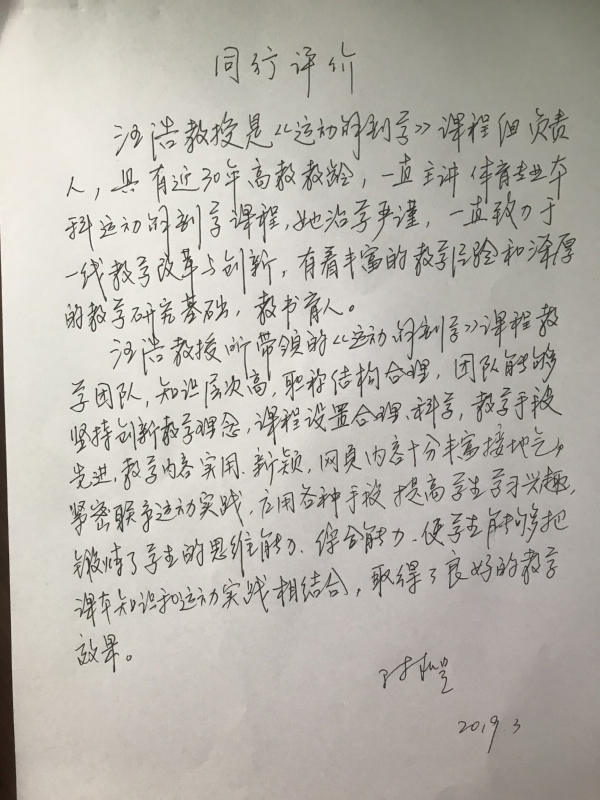 同行评价
汪浩教授是《运动解剖学》课程组负责
人，具有近30年高教教龄，一直主讲体育专业本
科运动解剖学课程，她治学严谨，一直致力于
一线教学改革与创新，有着丰富的教学经验和深厚
的教学研究基础，教书育人。
汪浩教授所带领的《运动解剖学》课程教
学团队，知识层次高，职称结构合理，团队能够
坚持创新教学理念，课程设置合理、科学，教学手段
先进，教学内容实用、新颖，网页内容十分丰富接地气，
紧密联系运动实践，应用各种手段提高学生学习兴趣，
锻炼了学生的思维能力、综合能力、使学生能够把
课本知识和运动实践相结合，取得了良好的教学
效果。
2019.3